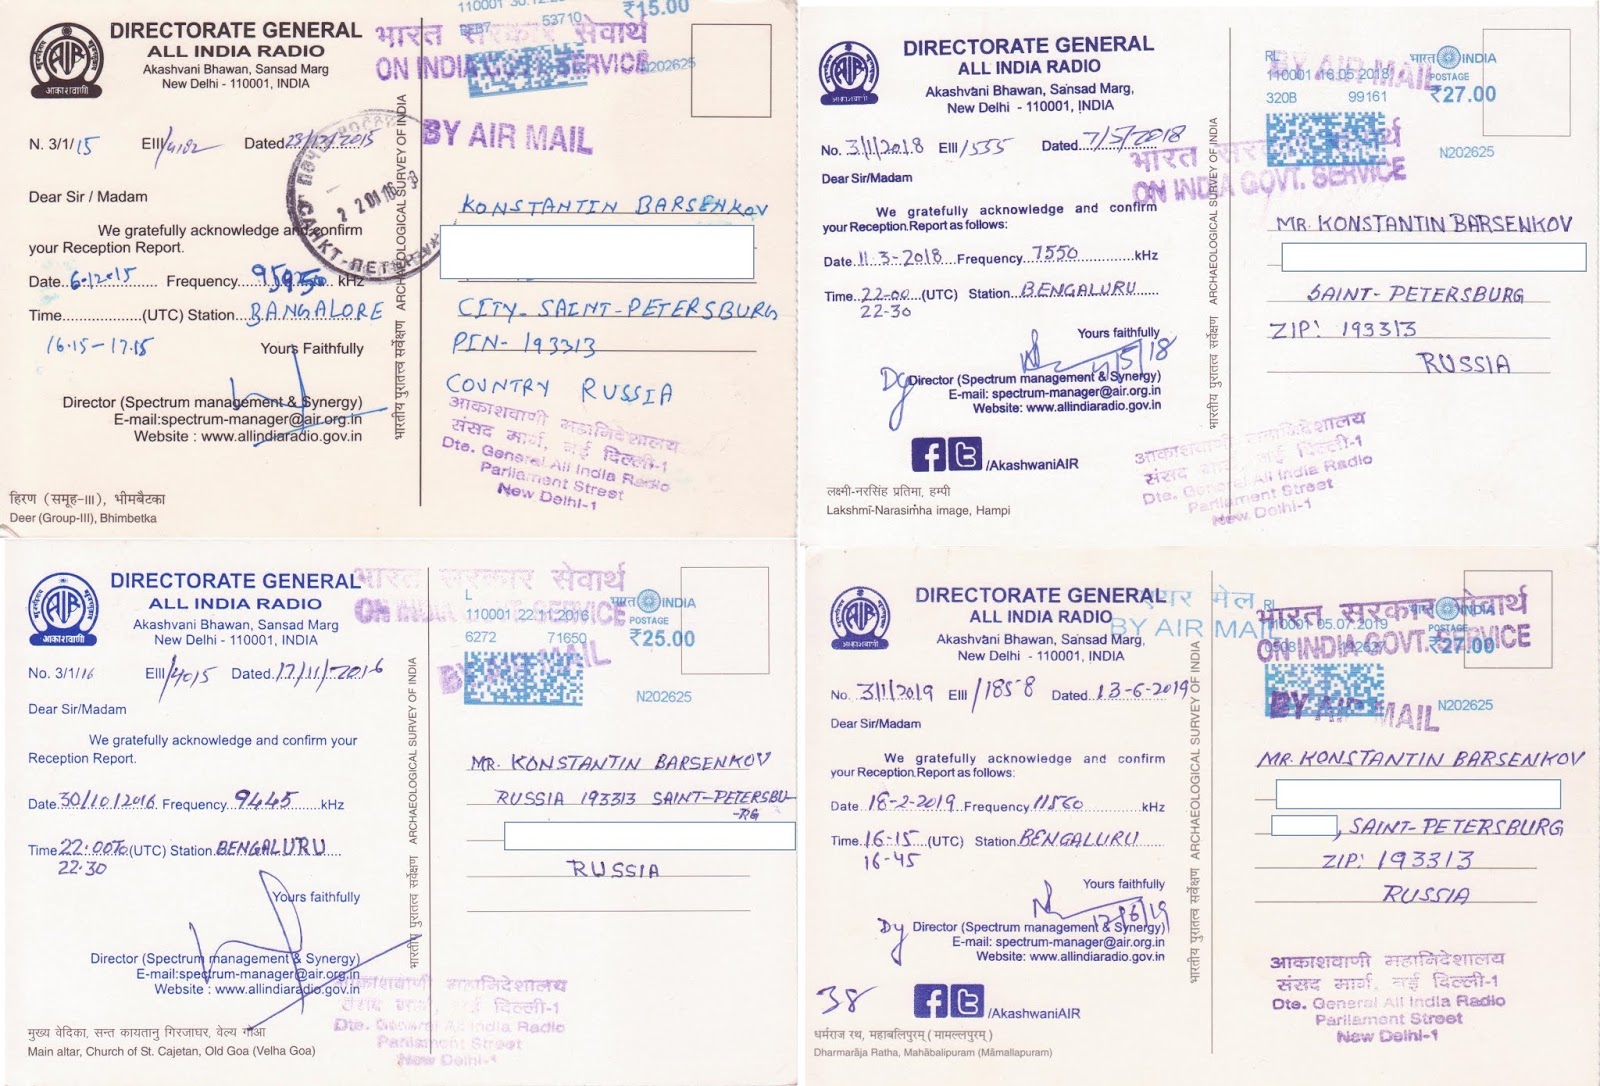 DIRECTORATE GENERAL
ALL INDIA RADIO
Akashvani Bhawan, Sansad Marg
New Delhi - 110001, INDIA
आकाशवाणी
N. 3/1/15 EIII/4182 Dated 23/12/2015
Dear Sir / Madam
We gratefully acknowledge and confirm
your Reception Report.
Date 6.12.15 Frequency 9595 kHz
Time (UTC) Station BANGALORE
16.15-17.15
Yours Faithfully
Director (Spectrum management & Synergy)
E-mail:spectrum-manager@air.org.in
Website : www.allindiaradio.gov.in
हिरण (समूह-III), भीमबैटका
Deer (Group-III), Bhimbetka
भारतीय पुरातत्व सर्वेक्षण ARCHAEOLOGICAL SURVEY OF INDIA
САНКТ-ПЕТЕРБУРГ
110001
53710
₹15.00
N202625
भारत सरकार सेवार्थ
ON INDIA GOVT. SERVICE
BY AIR MAIL
KONSTANTIN BARSENKOV
CITY- SAINT-PETERSBURG
PIN- 193313
COUNTRY RUSSIA
आकाशवाणी महानिदेशालय
संसद मार्ग, नई दिल्ली-1
Dte. General All India Radio
Parliament Street
New Delhi-1
DIRECTORATE GENERAL
ALL INDIA RADIO
Akashvani Bhawan, Sansad Marg,
New Delhi - 110001, INDIA
आकाशवाणी
No. 3/1/2018 EIII/535 Dated 7/5/2018
Dear Sir/Madam
We gratefully acknowledge and confirm
your Reception.Report as follows:
Date 11.3-2018 Frequency 7550 kHz
Time 22-00 (UTC) Station BENGALURU
22-30
Yours faithfully
Dy Director (Spectrum management & Synergy)
E-mail: spectrum-manager@air.org.in
Website: www.allindiaradio.gov.in
/AkashwaniAIR
लक्ष्मी-नरसिंह प्रतिमा, हम्पी
Lakshmī-Narasiṁha image, Hampi
भारतीय पुरातत्व सर्वेक्षण ARCHAEOLOGICAL SURVEY OF INDIA
RL
भारत INDIA
BY AIR MAIL
110001 16.05.2018 POSTAGE
320B 99161 ₹27.00
N202625
भारत सरकार सेवार्थ
ON INDIA GOVT. SERVICE
MR. KONSTANTIN BARSENKOV
SAINT-PETERSBURG
ZIP: 193313
RUSSIA
आकाशवाणी महानिदेशालय
संसद मार्ग, नई दिल्ली-1
Dte. General All India Radio
Parliament Street
New Delhi-1
DIRECTORATE GENERAL
ALL INDIA RADIO
Akashvani Bhawan, Sansad Marg
New Delhi - 110001, INDIA
आकाशवाणी
No. 3/1/16 EIII/4015 Dated 17/11/2016
Dear Sir/Madam
We gratefully acknowledge and confirm your
Reception Report.
Date 30/10/2016 Frequency 9445 kHz
Time 22.00To (UTC) Station BENGALURU
22.30
Yours faithfully
Director (Spectrum management & Synergy)
E-mail:spectrum-manager@air.org.in
Website : www.allindiaradio.gov.in
मुख्य वेदिका, सन्त कायतानु गिरजाघर, वेल्य गोआ
Main altar, Church of St. Cajetan, Old Goa (Velha Goa)
भारतीय पुरातत्व सर्वेक्षण ARCHAEOLOGICAL SURVEY OF INDIA
भारत सरकार सेवार्थ
ON INDIA GOVT. SERVICE
L
भारत INDIA
110001 22.11.2016 POSTAGE
6272 71650 ₹25.00
BY AIR MAIL
N202625
MR. KONSTANTIN BARSENKOV
RUSSIA 193313 SAINT-PETERSBU-
-RG
RUSSIA
आकाशवाणी महानिदेशालय
संसद मार्ग, नई दिल्ली-1
Dte. General All India Radio
Parliament Street
New Delhi-1
DIRECTORATE GENERAL
ALL INDIA RADIO
Akashvani Bhawan, Sansad Marg,
New Delhi - 110001, INDIA
आकाशवाणी
No. 3/1/2019 EIII/1858 Dated 13-6-2019
Dear Sir/Madam
We gratefully acknowledge and confirm
your Reception.Report as follows:
Date 18-2-2019 Frequency 11560 kHz
Time 16-15 (UTC) Station BENGALURU
16-45
Yours faithfully
Dy Director (Spectrum management & Synergy)
E-mail: spectrum-manager@air.org.in
Website: www.allindiaradio.gov.in
38
/AkashwaniAIR
धर्मराज रथ, महाबलिपुरम् (मामल्लपुरम्)
Dharmarāja Ratha, Mahābalipuram (Māmallapuram)
भारतीय पुरातत्व सर्वेक्षण ARCHAEOLOGICAL SURVEY OF INDIA
एयर मेल
BY AIR MAIL
RL
भारत INDIA
भारत सरकार सेवार्थ
ON INDIA GOVT. SERVICE
110001 05.07.2019 POSTAGE
₹27.00
BY AIR MAIL
N202625
MR. KONSTANTIN BARSENKOV
, SAINT-PETERSBURG
ZIP: 193313
RUSSIA
आकाशवाणी महानिदेशालय
संसद मार्ग, नई दिल्ली-1
Dte. General All India Radio
Parliament Street
New Delhi-1